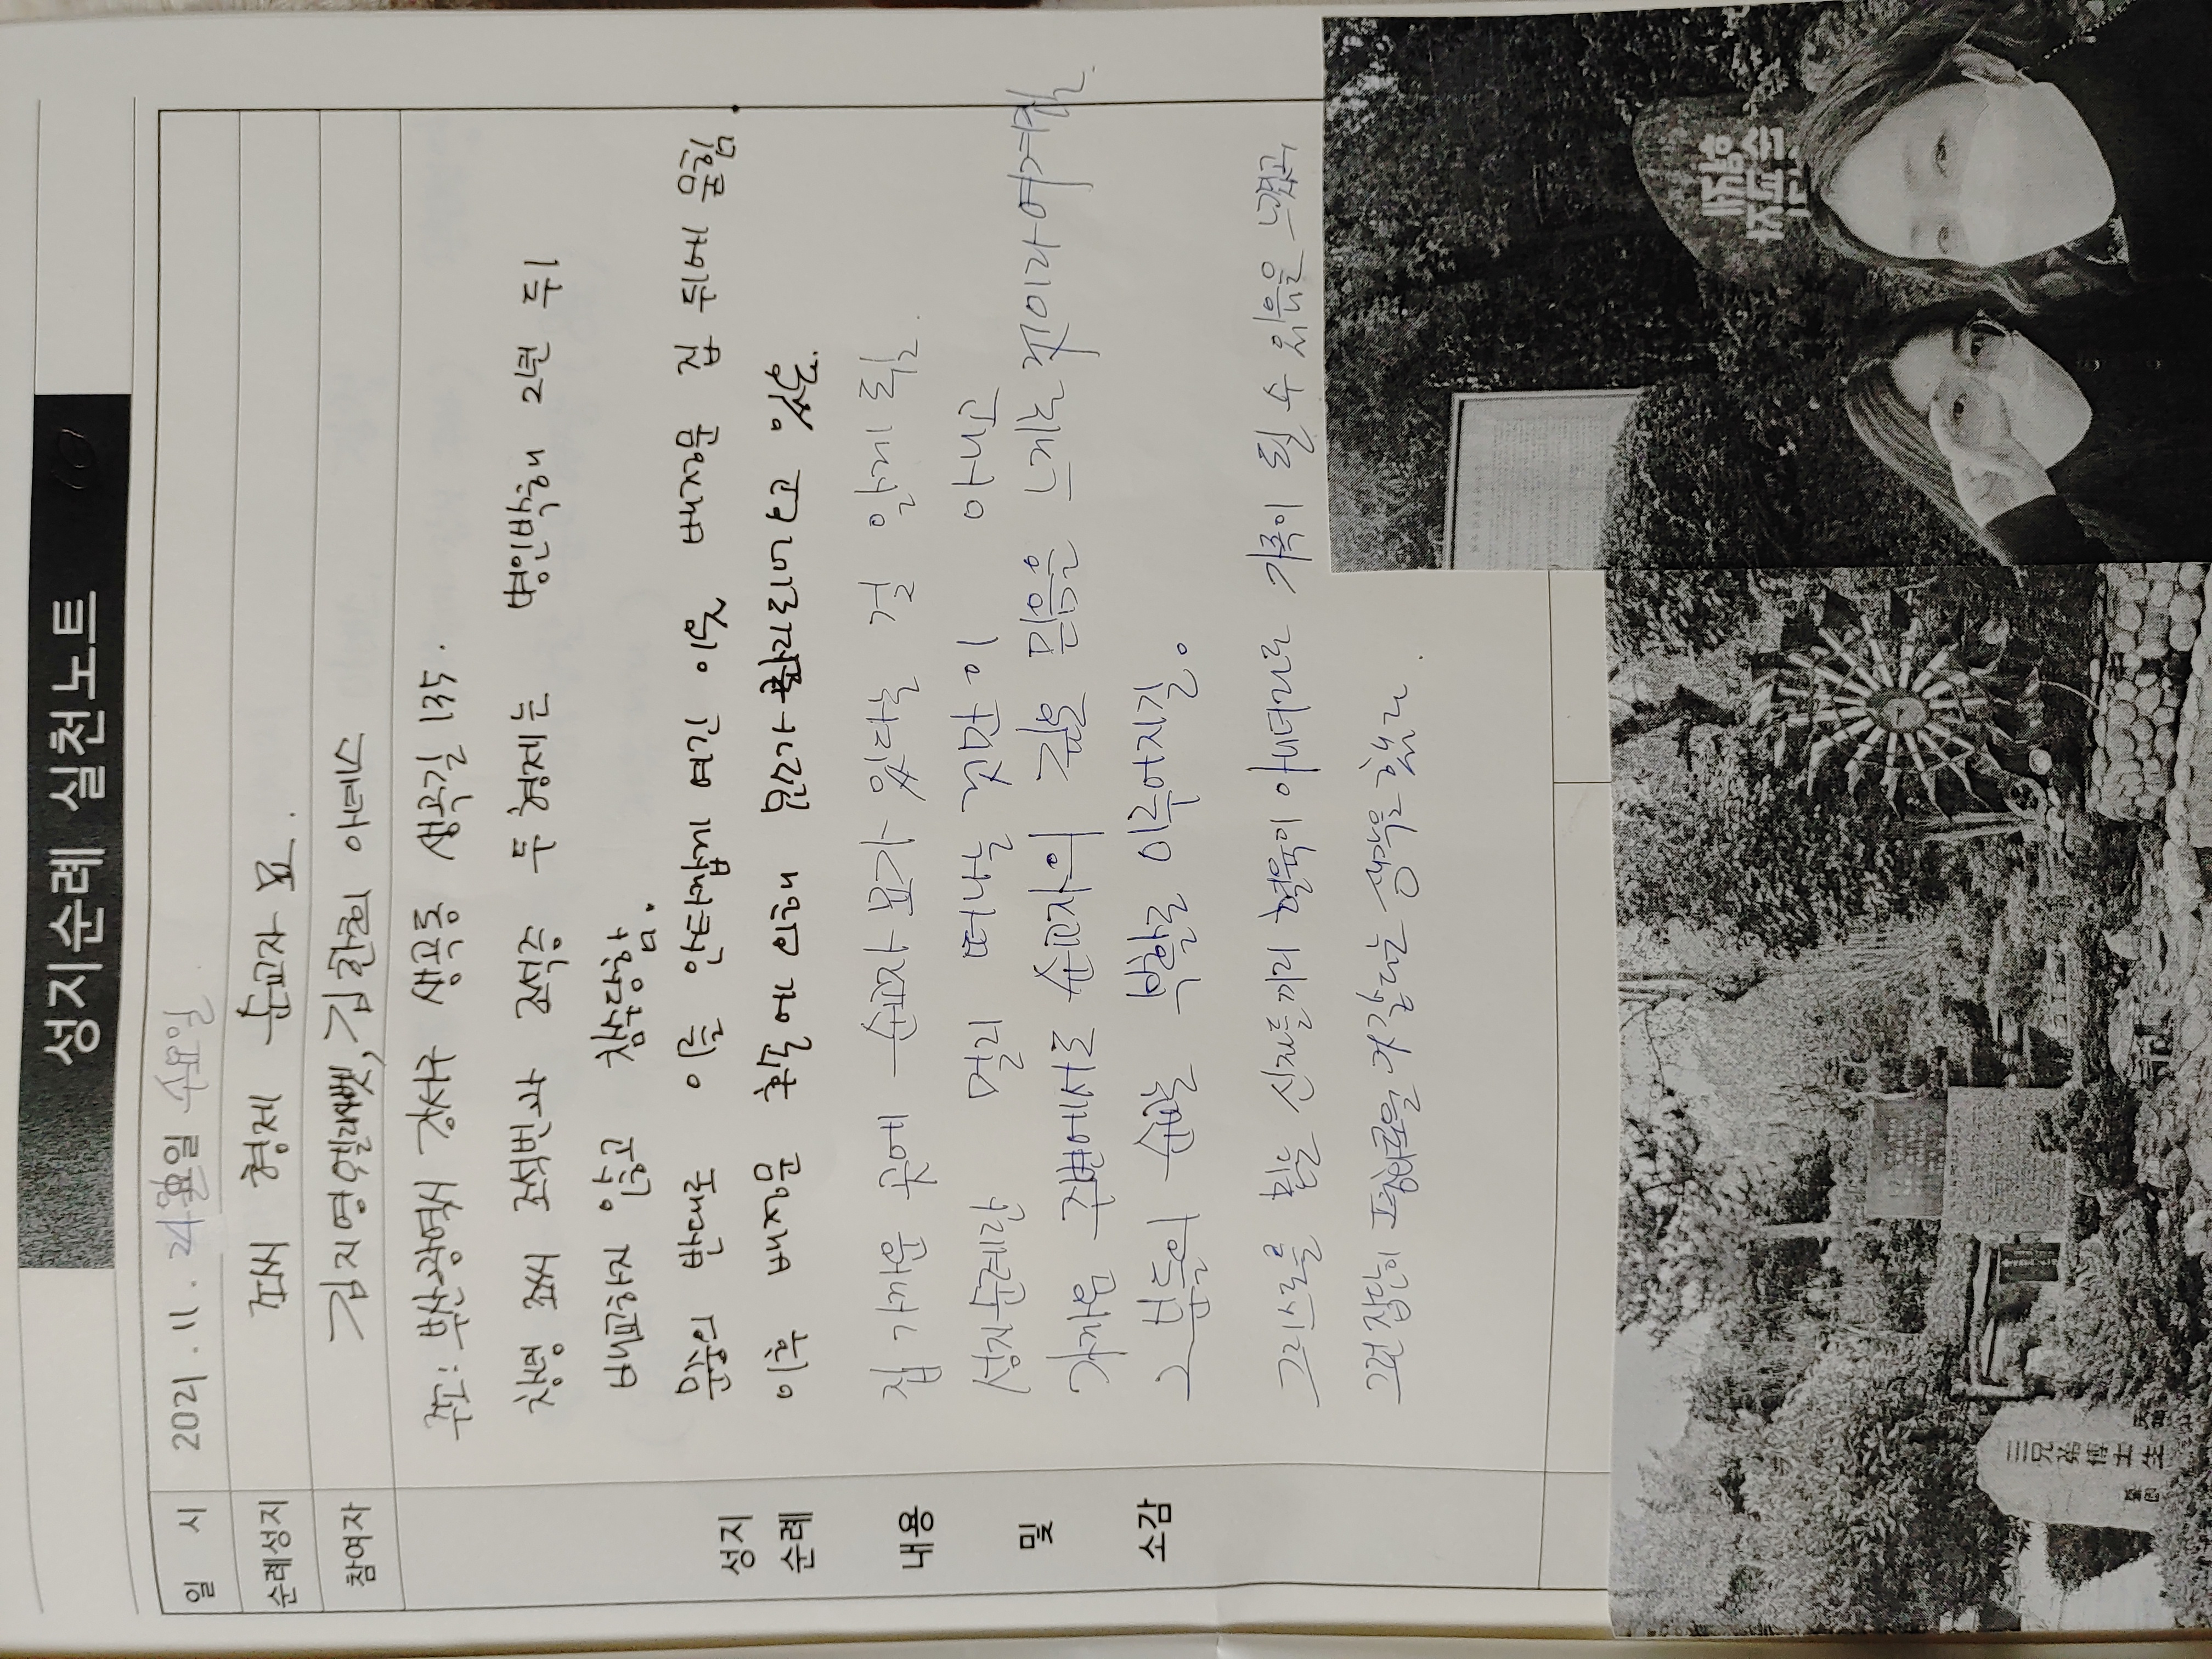 성지순례 실천노트
일 시
2021. 11. 24일 수요일
순례성지
조씨 형제 순교자 묘.
참여자
김지영 엘리사벳, 김한희 아녜스
주소: 부산광역시 강서구 생곡동 생곡길 135.
창녕 조씨 조석빈과 조석증 두 형제는 병인박해 2년 뒤
배교하지 않고 참수당함.
문중의 반대로 이를 안타깝게 여긴 이웃 배정문 집 뒤에 묻힘
이후 배정문 후손에 의해 묘소가 관리되어 오고 있음.
성지
순례
내용
및
소감
집 가까운 곳에 순교자 묘가 있다는 걸 알게 됨.
성지순례란 멀리 떠나는 것만이 아니고
가까운 주변에서도 순교자의 깊은 믿음을 느끼는 것이라 여겨짐.
그분들의 순교는 부활로 이루어지길.
그리스도를 믿는 신자들끼리 혈육이 아니더라도 가족이 될 수 있음을 느꼈고,
그런 집단이 평화로울 것 같다는 생각을 했다.
三兄弟博士生